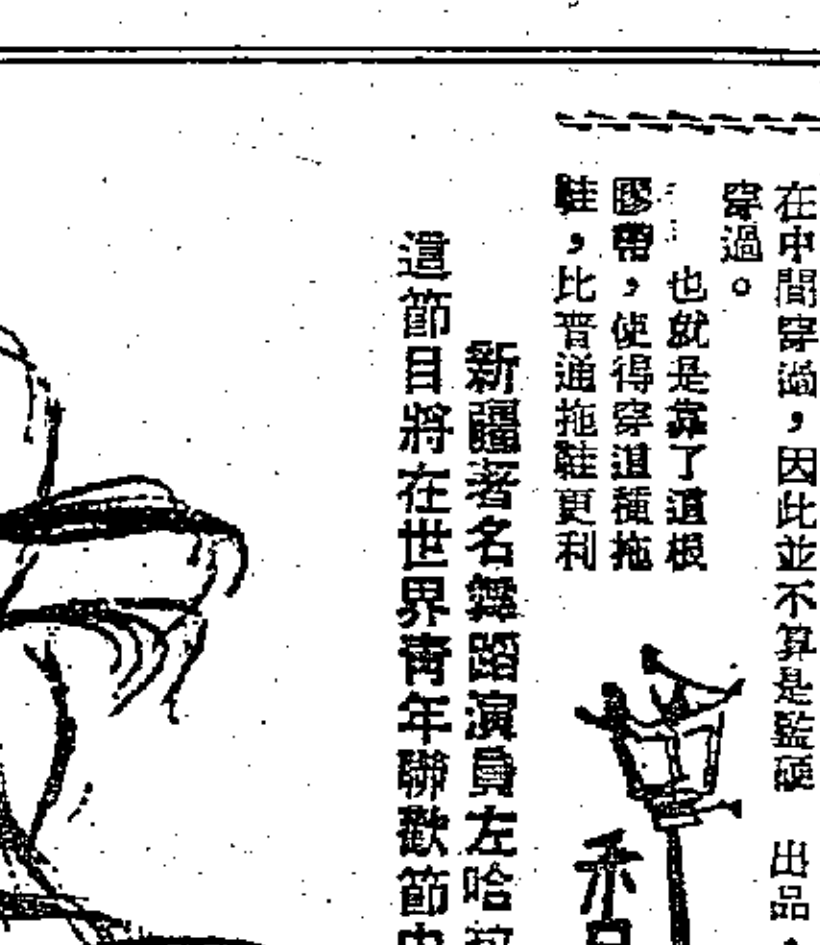 在中間穿過，因此並不算是 出品，
穿過。
也就是靠了這根
膠帶，使得穿這種拖
鞋，比普通拖鞋更利
新疆著名舞蹈演員左哈
這節目將在世界青年聯歡節中